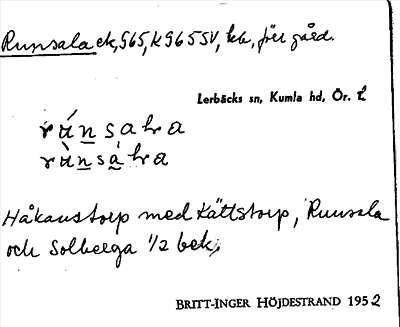 Runsala ek, G65, K965SV, kk, förr gård.
Lerbäcks sn, Kumla hd, Ör. l
rúnsaLa
rùnsàLa
Håkanstorp med Kättstorp, Runsala
och Solberga 1/2 bek,
BRITT-INGER HÖJDESTRAND 1952